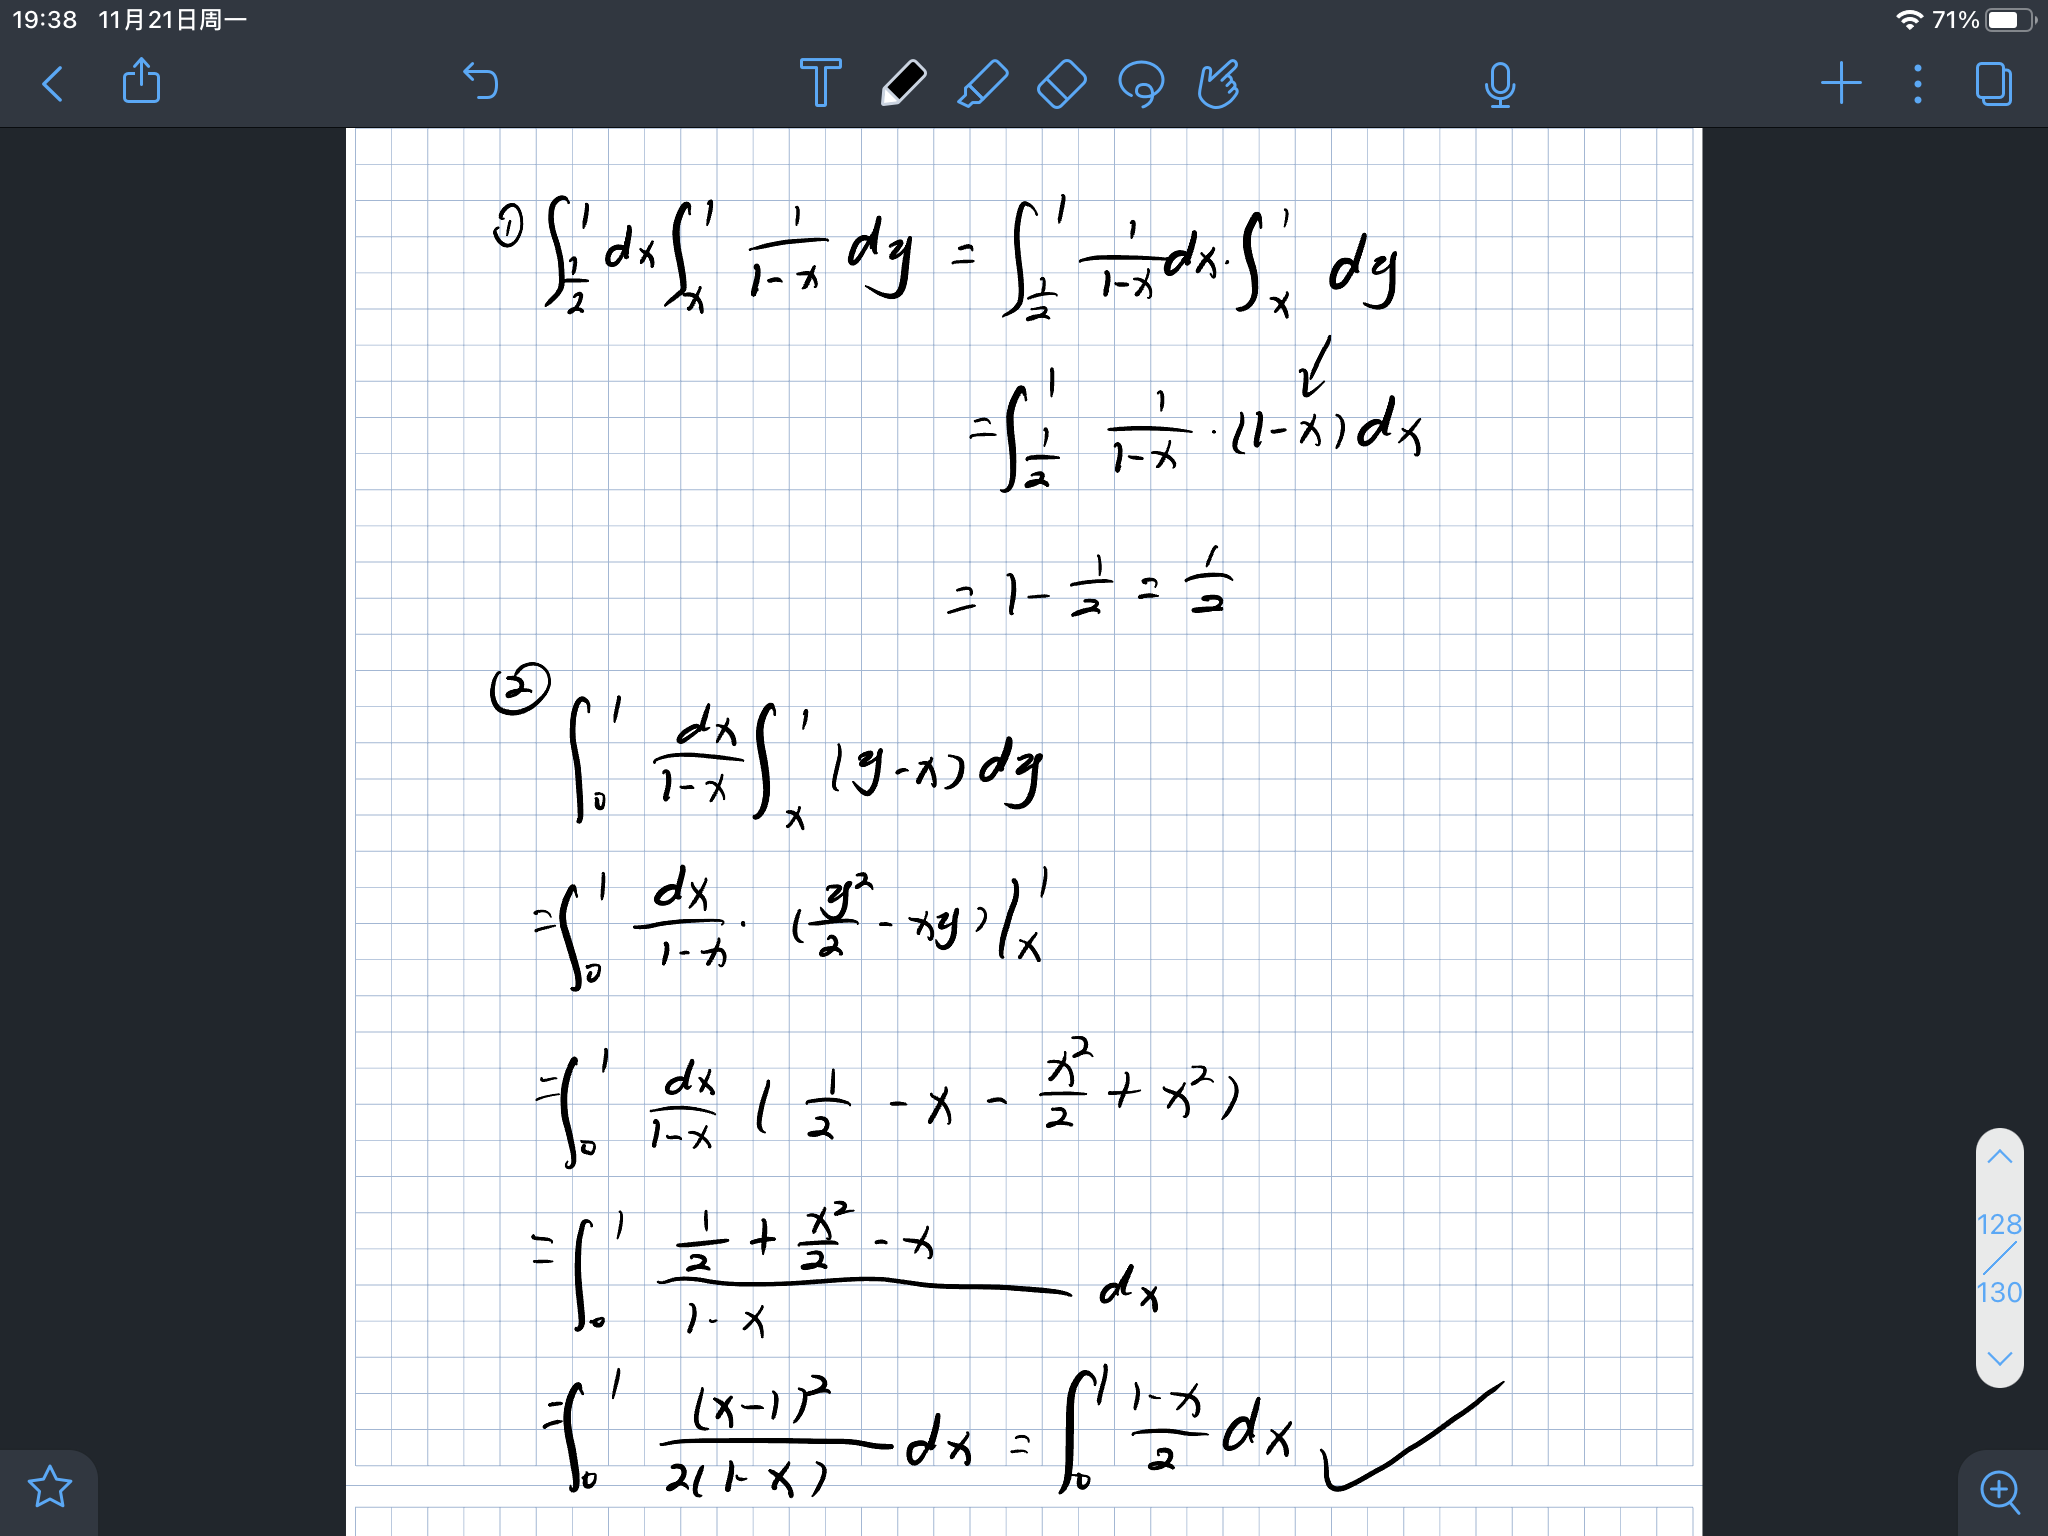 19:38 11月21日周一 71%
① ∫_{1/2}^{1} dx ∫_{x}^{1} 1/(1-x) dy = ∫_{1/2}^{1} 1/(1-x) dx · ∫_{x}^{1} dy
= ∫_{1/2}^{1} 1/(1-x) · (1-x) dx
= 1 - 1/2 = 1/2
② ∫_{0}^{1} dx/(1-x) ∫_{x}^{1} (y-x) dy
= ∫_{0}^{1} dx/(1-x) · (y²/2 - xy) |_{x}^{1}
= ∫_{0}^{1} dx/(1-x) (1/2 - x - x²/2 + x²)
= ∫_{0}^{1} (1/2 + x²/2 - x)/(1-x) dx
= ∫_{0}^{1} (x-1)²/(2(1-x)) dx = ∫_{0}^{1} (1-x)/2 dx
128
130